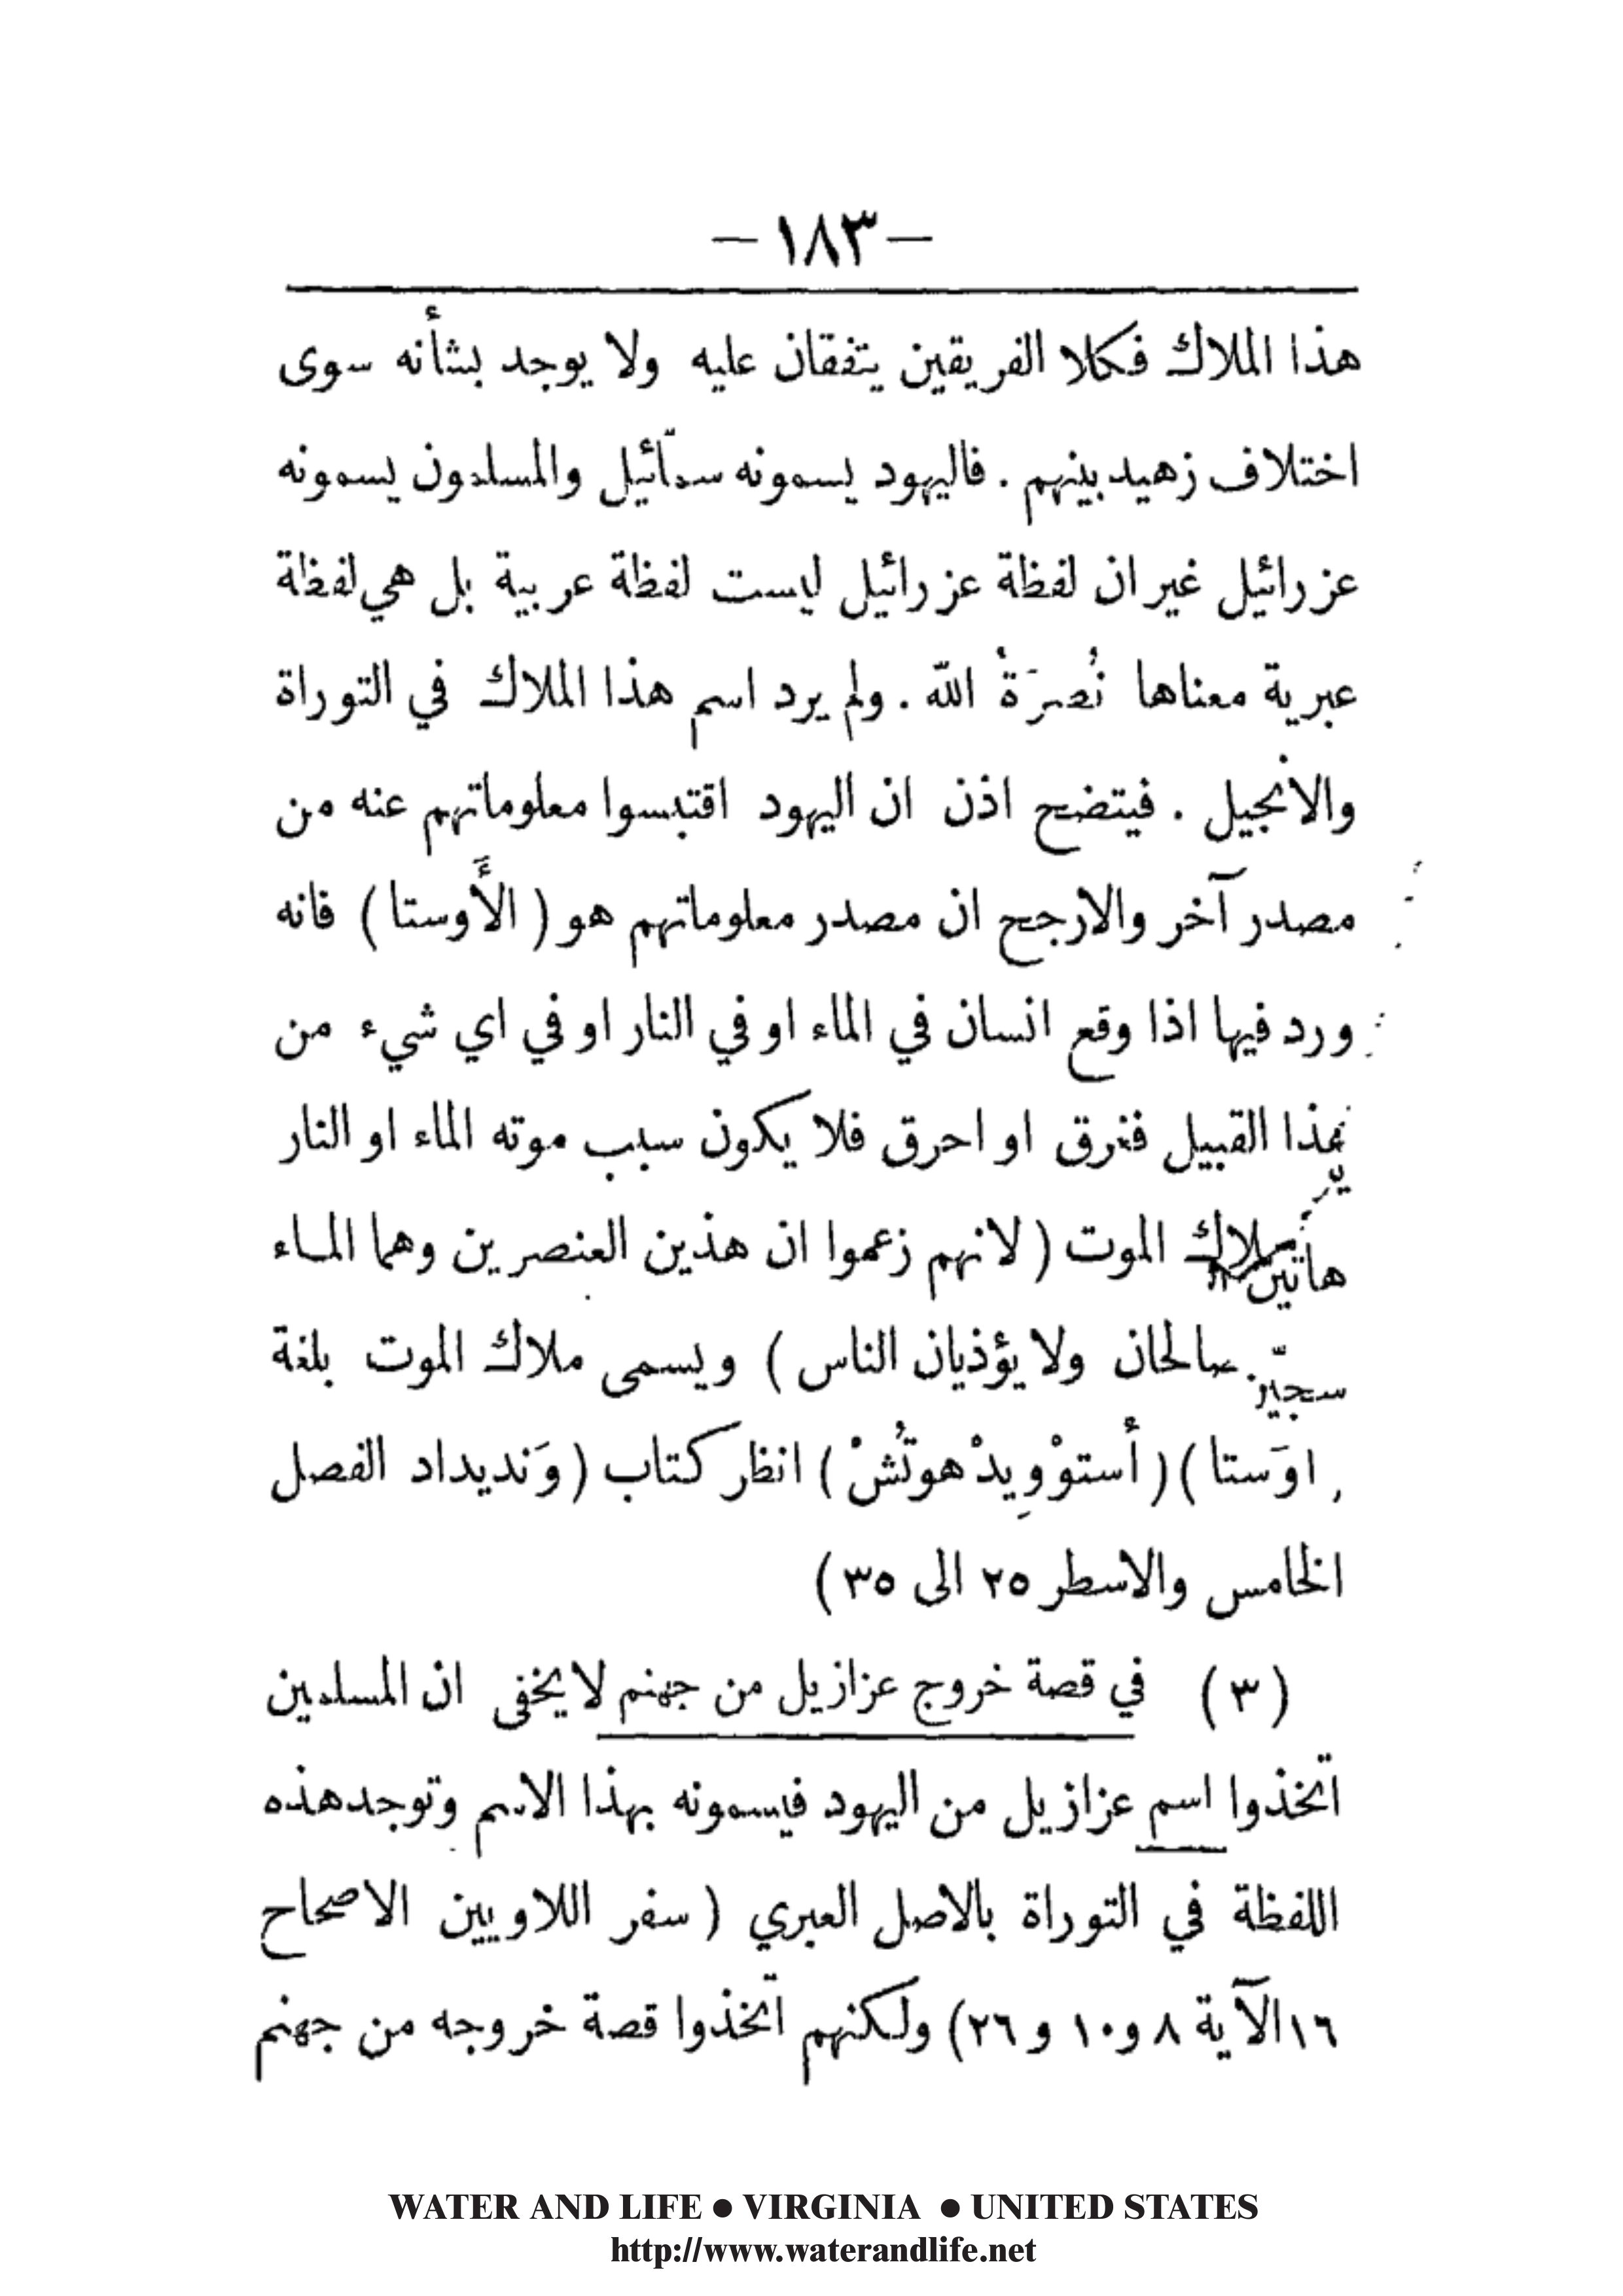 — ١٨٣ —
هذا الملاك فكلا الفريقين يتفقان عليه ولا يوجد بشأنه سوى
اختلاف زهيد بينهم . فاليهود يسمونه سمّائيل والمسلمون يسمونه
عزرائيل غير ان لفظة عزرائيل ليست لفظة عربية بل هي لفظة
عبرية معناها نُصرَةْ الله . ولم يرد اسم هذا الملاك في التوراة
والانجيل . فيتضح اذن ان اليهود اقتبسوا معلوماتهم عنه من
مصدر آخر والارجح ان مصدر معلوماتهم هو ( الأَوستا ) فانه
ورد فيها اذا وقع انسان في الماء او في النار او في اي شيء من
هذا القبيل فغرق او احرق فلا يكون سبب موته الماء او النار
ملاك الموت ( لانهم زعموا ان هذين العنصرين وهما الماء
هاتين
صالحان ولا يؤذيان الناس ) ويسمى ملاك الموت بلغة
اوَستا ) ( أستوْوِيدْهوتُشْ ) انظر كتاب ( وَنديداد الفصل
الخامس والاسطر ٢٥ الى ٣٥ )
( ٣ ) في قصة خروج عزازيل من جهنم لا يخفى ان المسلمين
اتخذوا اسم عزازيل من اليهود فيسمونه بهذا الاسم وتوجد هذه
اللفظة في التوراة بالاصل العبري ( سفر اللاويين الاصحاح
١٦ الآية ٨ و١٠ و ٢٦ ) ولكنهم اتخذوا قصة خروجه من جهنم
WATER AND LIFE ● VIRGINIA ● UNITED STATES
http://www.waterandlife.net